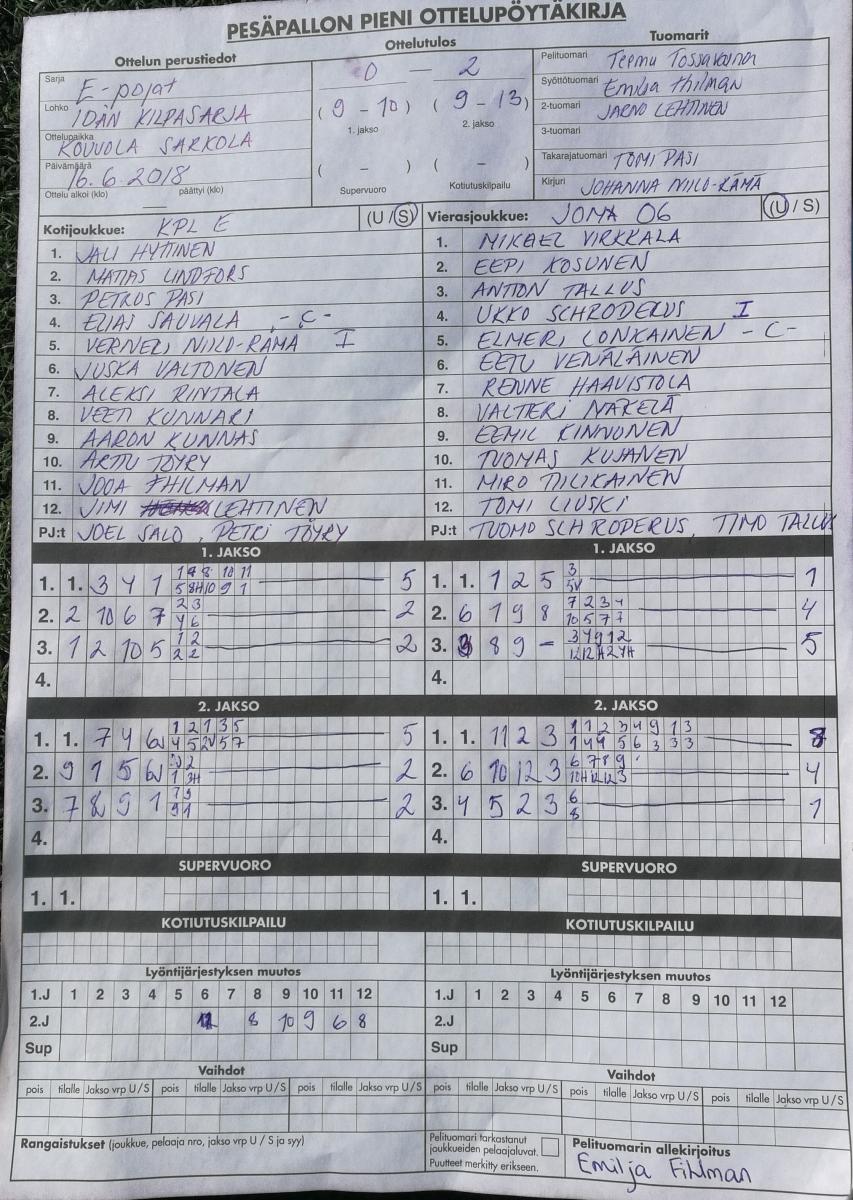 PESÄPALLON PIENI OTTELUPÖYTÄKIRJA
Ottelun perustiedot
Ottelutulos
Tuomarit
Sarja E-pojat
0 — 2
Pelituomari Teemu
Syöttötuomari Emilia
Lohko IDÄN KILPASARJA
(9 - 10) (9 - 13)
1. jakso 2. jakso
2-tuomari JARNO LEHTINEN
Ottelupaikka KOUVOLA SARKOLA
3-tuomari
Päivämäärä 16.6.2018
( - ) ( - )
Takarajatuomari TOMI PASI
Ottelu alkoi (klo) — päättyi (klo)
Supervuoro Kotiutuskilpailu
Kirjuri JOHANNA NIILO-RÄMÄ
Kotijoukkue: KPL E (U / S)
Vierasjoukkue: JOMA 06 (U / S)
1. JALI HYTTINEN
2. MATIAS LINDFORS
3. PETRUS PASI
4. ELIAS SAUVALA -C-
5. VERNERI NIILO-RÄMÄ I
6. JUSKA VALTONEN
7. ALEKSI RINTALA
8. VEETI KUNNARI
9. AARON KUNNAS
10. ARTTU TÖYRY
11. JOOA FHILMAN
12. JIMI LEHTINEN
PJ:t JOEL SALO, PETRI TÖYRY
1. MIKAEL VIRKKALA
2. EEPI KOSUNEN
3. ANTON TALLUS
4. UKKO SCHRODERUS I
5. ELMERI LONKAINEN -C-
6. EETU VENÄLÄINEN
7. RENNE HAAVISTOLA
8. VALTTERI MÄKELÄ
9. EEMIL KINNUNEN
10. TUOMAS KUJANEN
11. MIRO TILIKAINEN
12. TOMI LIUSKI
PJ:t TUOMO SCHRODERUS, TIMO TALLUS
1. JAKSO
1. 1. 3 4 1 5
2. 2 10 6 7 2 3 2
4 6
3. 1 2 10 5 1 2 2
2 2
4.
1. JAKSO
1. 1. 1 2 5 3 1
5V
2. 6 1 9 8 7 2 3 4 4
10 5 7 7
3. 8 9 - 5
4.
2. JAKSO
1. 1. 7 4 6V 1 2 1 3 5 5
4 5 2V 5 7
2. 9 1 5 6V 2
3. 7 8 9 1 2
4.
2. JAKSO
1. 1. 11 2 3 1 1 2 3 4 9 1 3 8
1 4 4 5 6 3 3 3
2. 6 10 12 3 6 7 8 9 4
3. 4 5 2 3 6 1
8
4.
SUPERVUORO
1. 1.
SUPERVUORO
1. 1.
KOTIUTUSKILPAILU
KOTIUTUSKILPAILU
Lyöntijärjestyksen muutos
1.J 1 2 3 4 5 6 7 8 9 10 11 12
2.J 8 10 9 6 8
Sup
Lyöntijärjestyksen muutos
1.J 1 2 3 4 5 6 7 8 9 10 11 12
2.J
Sup
Vaihdot
pois tilalle Jakso vrp U/S pois tilalle Jakso vrp U/S pois tilalle Jakso vrp U/S
Vaihdot
pois tilalle Jakso vrp U/S pois tilalle Jakso vrp U/S pois tilalle Jakso vrp U/S
Rangaistukset (joukkue, pelaaja nro, jakso vrp U / S ja syy)
Pelituomari tarkastanut
joukkueiden pelaajaluvat.
Puutteet merkitty erikseen.
Pelituomarin allekirjoitus
Emilja Fihlman